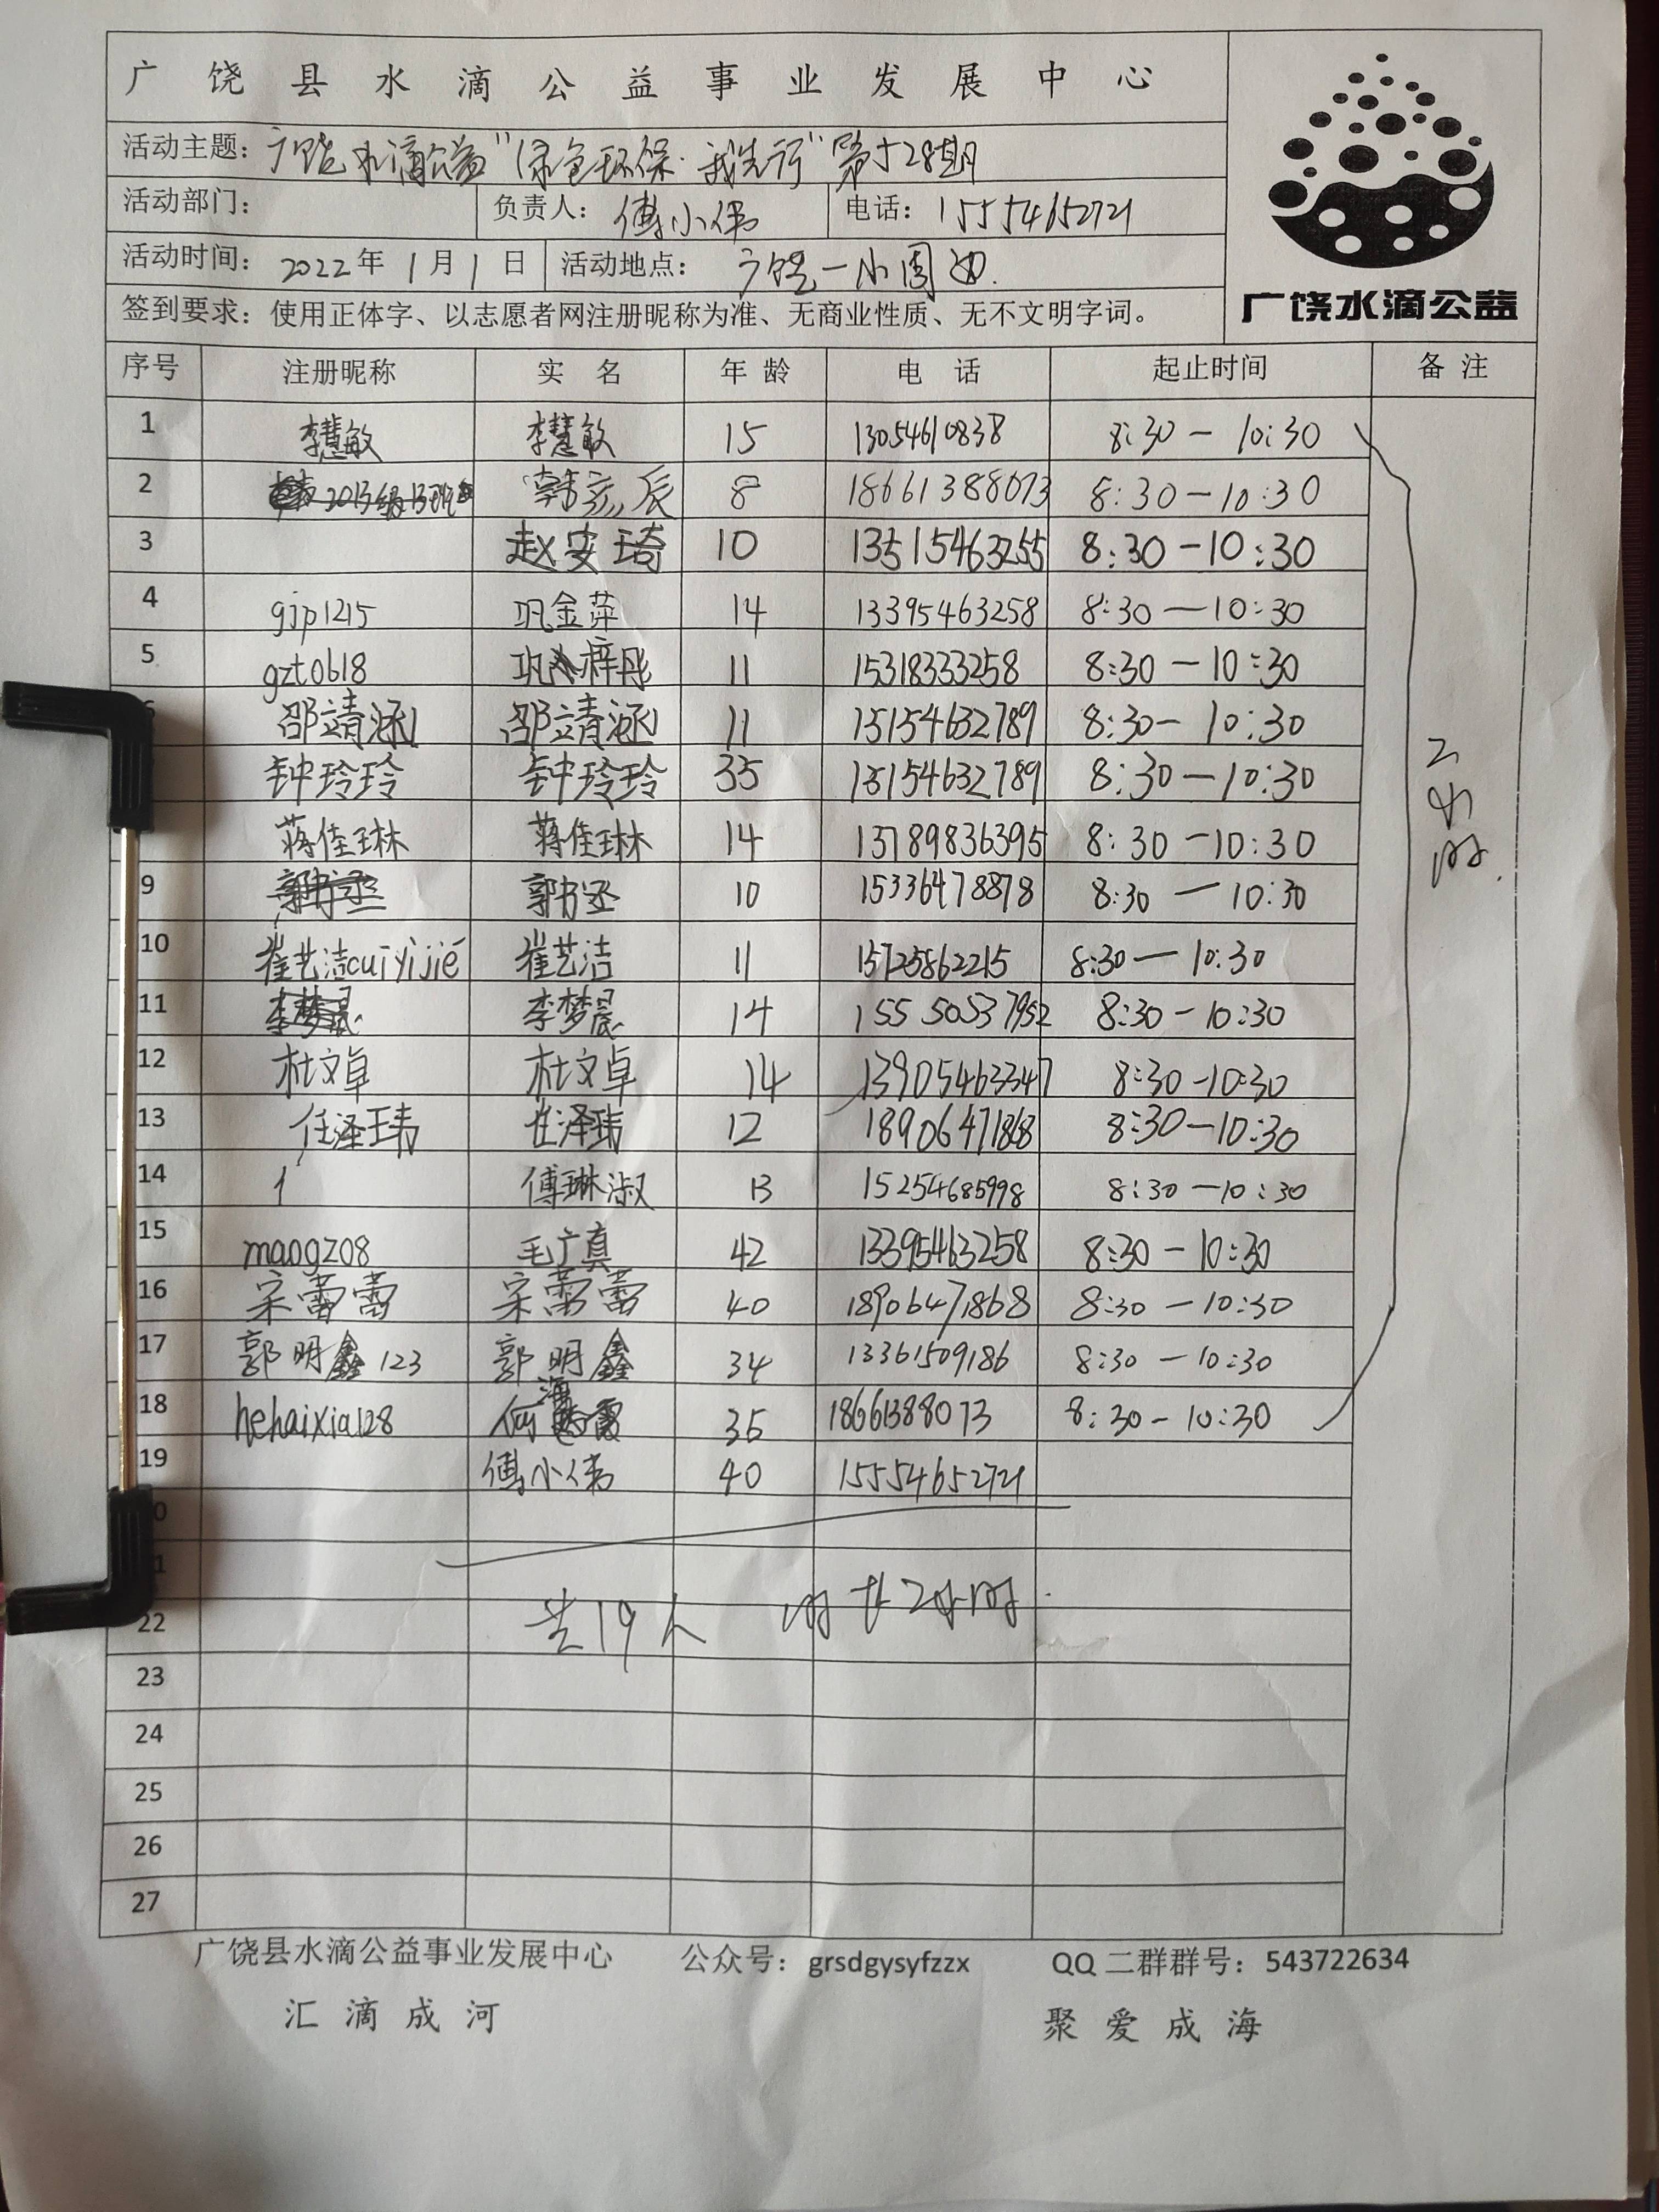 广饶县水滴公益事业发展中心
活动主题：广饶水滴公益“绿色环保·我先行”第528期
活动部门： 负责人：傅小伟 电话：15554652721
活动时间：2022年1月1日 活动地点：广饶一小周边.
签到要求：使用正体字、以志愿者网注册昵称为准、无商业性质、无不文明字词。
广饶水滴公益
序号 注册昵称 实名 年龄 电话 起止时间 备注
1 李慧敏 李慧敏 15 13054610838 8:30-10:30
2 2013级13班 韩亥辰 8 18661388073 8:30-10:30
3 赵安琦 10 13515463255 8:30-10:30
4 gjp1215 巩金萍 14 13395463258 8:30-10:30
5 gzt0618 巩梓彤 11 15318333258 8:30-10:30
6 邵靖涵 邵靖涵 11 15154632789 8:30-10:30
钟玲玲 钟玲玲 35 15154632789 8:30-10:30
2小时.
蒋佳琳 蒋佳琳 14 13789836395 8:30-10:30
9 郭书丞 郭书丞 10 15336478878 8:30-10:30
10 崔艺洁cuiyijié 崔艺洁 11 15725862215 8:30-10:30
11 李梦晨 李梦晨 14 15550537952 8:30-10:30
12 杜文卓 杜文卓 14 13905463347 8:30-10:30
13 任泽玮 任泽玮 12 18906471868 8:30-10:30
14 1 傅琳淑 13 15254685998 8:30-10:30
15 maogz08 毛广真 42 13395463258 8:30-10:30
16 宋蕾蕾 宋蕾蕾 40 18906471868 8:30-10:30
17 郭明鑫123 郭明鑫 34 13361509186 8:30-10:30
18 hehaixia128 何海霞 35 18661388073 8:30-10:30
19 傅小伟 40 15554652721
0
1
22 共19人 时长2小时.
23
24
25
26
27
广饶县水滴公益事业发展中心 公众号：grsdgysyfzzx QQ二群群号：543722634
汇滴成河 聚爱成海